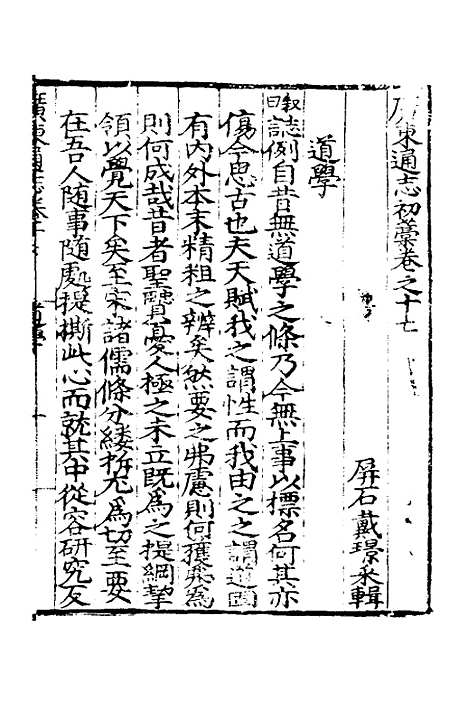 廣東通志初藁卷之十七
屏石戴璟采輯
道學
敘曰誌例自昔無道學之條乃今無上事以標名何其亦
傷今思古也夫天賦我之謂性而我由之之謂道固
有内外本末精粗之辨矣然要之弗慮則何獲弗為
則何成哉昔者聖賢憂人極之未立既為之提綱挈
領以覺天下矣至宋諸儒條分縷析尤為切至要
在吾人随事随處提撕此心而就其中從容研究反
廣東通志卷十